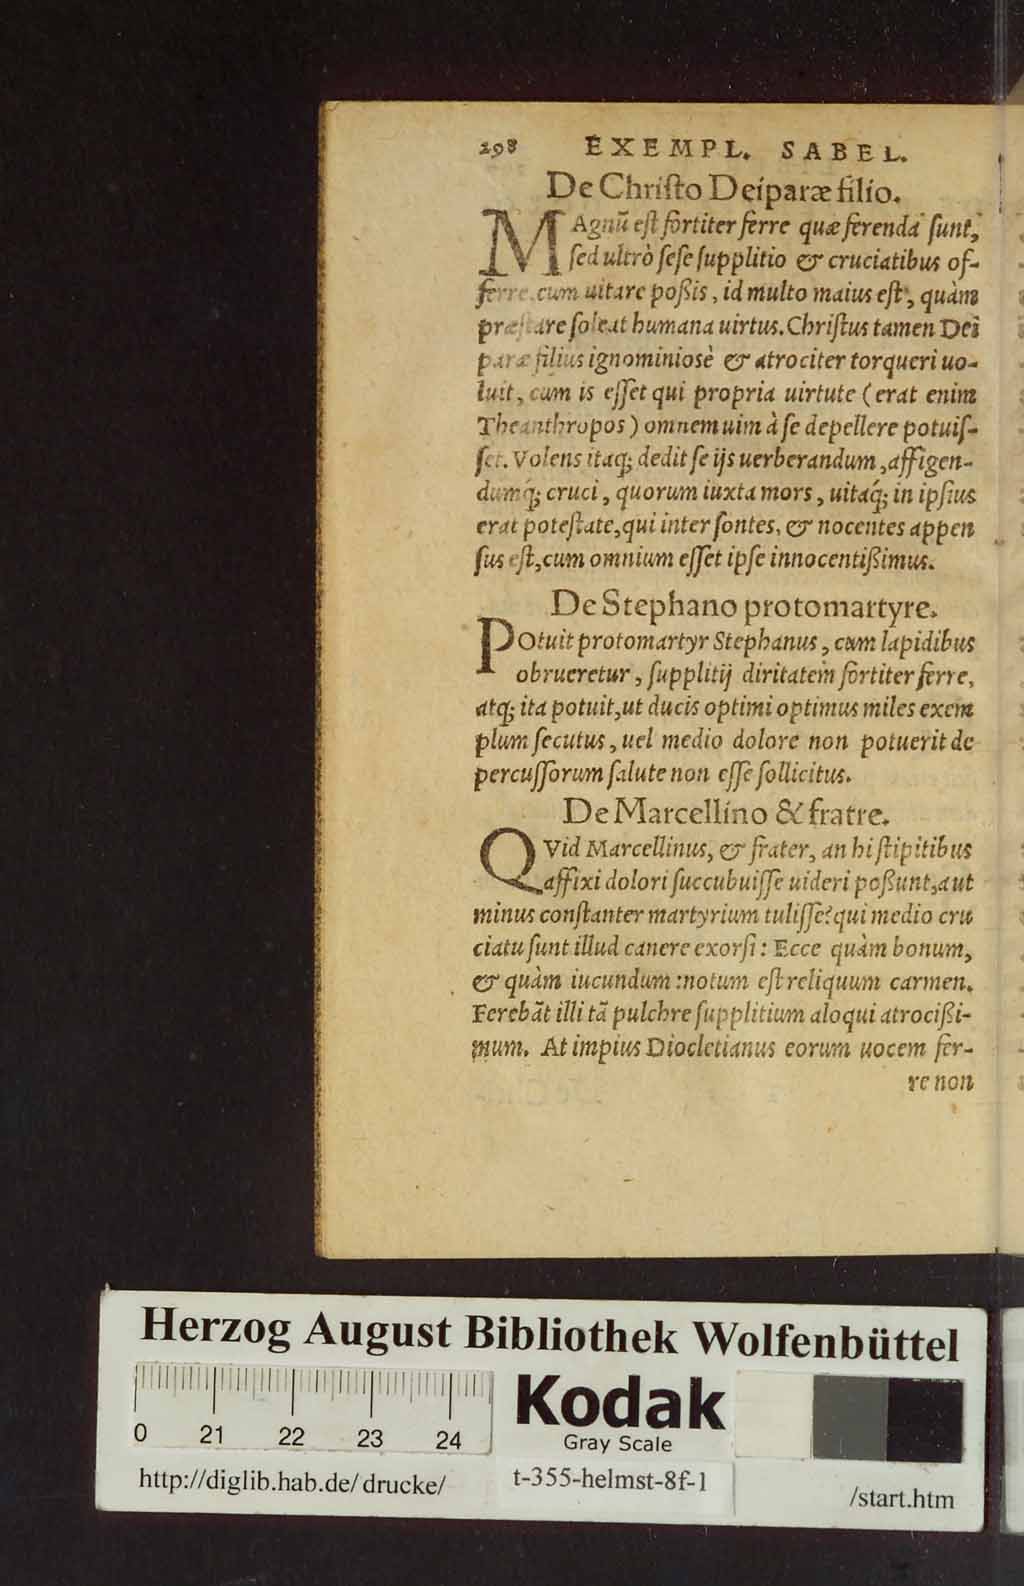 298 EXEMPL. SABEL.
De Christo Deiparæ filio.
MAgnũ est fortiter ferre quæ ferenda sunt,
sed ultrò sese supplitio & cruciatibus of-
ferre, cum uitare poßis, id multo maius est, quàm
præstare soleat humana uirtus. Christus tamen Dei
paræ filius ignominiosè & atrociter torqueri uo-
luit, cum is esset qui propria uirtute (erat enim
Theanthropos) omnem uim à se depellere potuis-
set. Volens itaq; dedit se ijs uerberandum, affigen-
dumq́; cruci, quorum iuxta mors, uitaq́; in ipsius
erat potestate, qui inter sontes, & nocentes appen
sus est, cum omnium esset ipse innocentißimus.
De Stephano protomartyre.
POtuit protomartyr Stephanus, cum lapidibus
obrueretur, supplitij diritatem fortiter ferre,
atq; ita potuit, ut ducis optimi optimus miles exem
plum secutus, uel medio dolore non potuerit de
percussorum salute non esse sollicitus.
De Marcellino & fratre.
QVid Marcellinus, & frater, an hi stipitibus
affixi dolori succubuisse uideri poßunt, aut
minus constanter martyrium tulisse? qui medio cru
ciatu sunt illud canere exorsi: Ecce quàm bonum,
& quàm iucundum: notum est reliquum carmen.
Ferebãt illi tã pulchre supplitium aloqui atrocißi-
mum. At impius Diocletianus eorum uocem fer-
re non
Herzog August Bibliothek Wolfenbüttel
0 21 22 23 24
Kodak
Gray Scale
http://diglib.hab.de/drucke/ t-355-helmst-8f-1 /start.htm